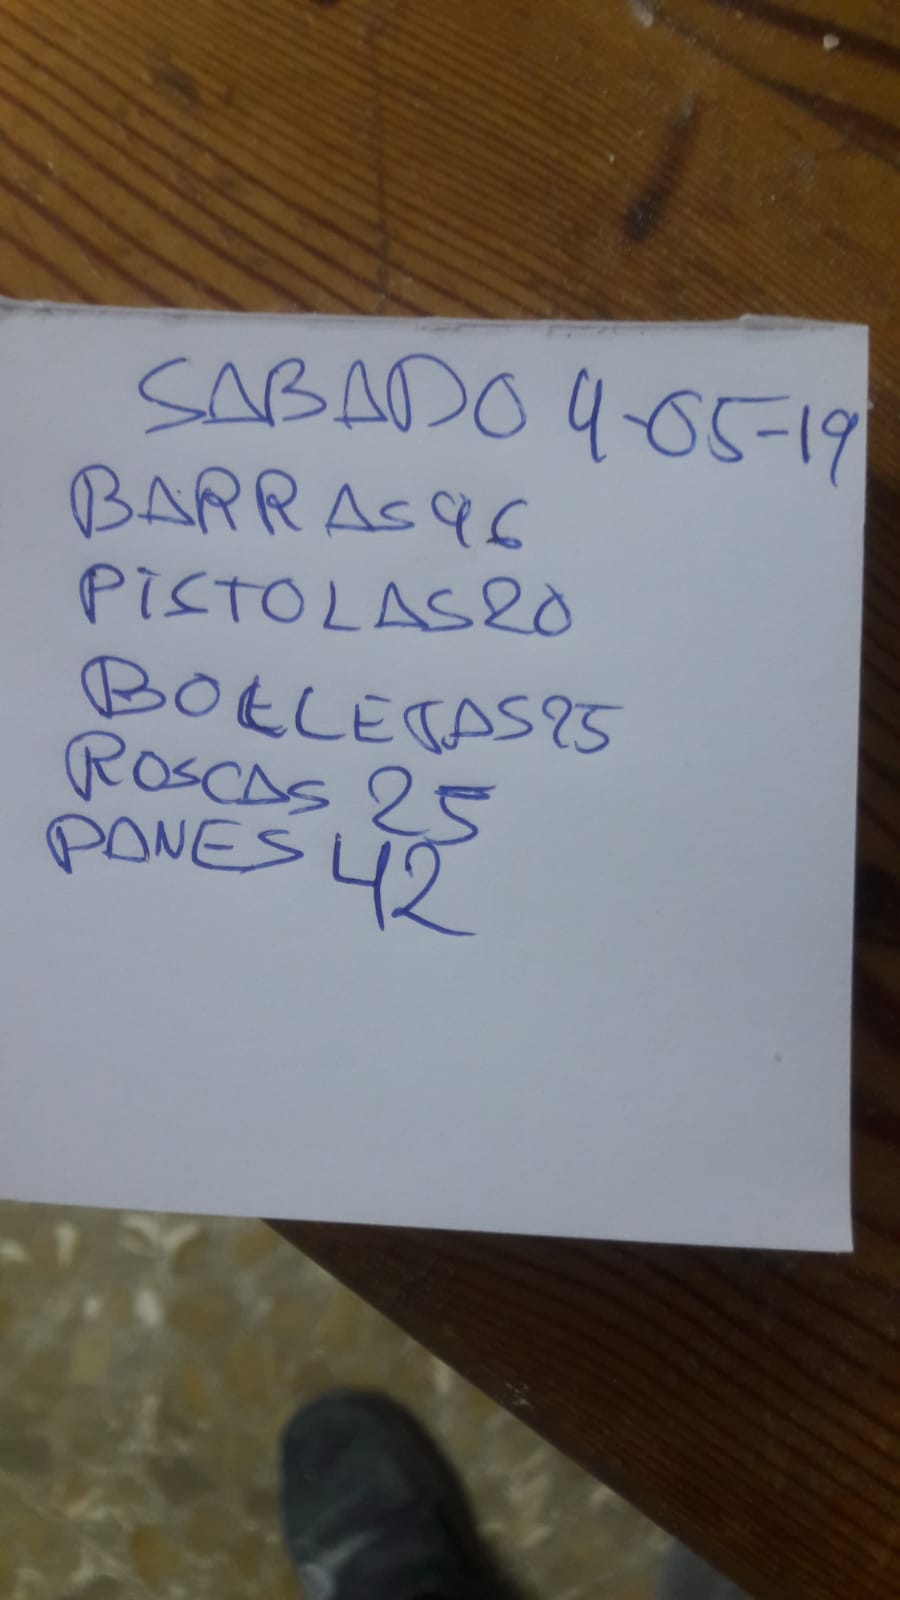 SABADO 4-05-19
BARRAS 96
PISTOLAS 20
BOLLETAS 25
ROSCAS 25
PANES 42